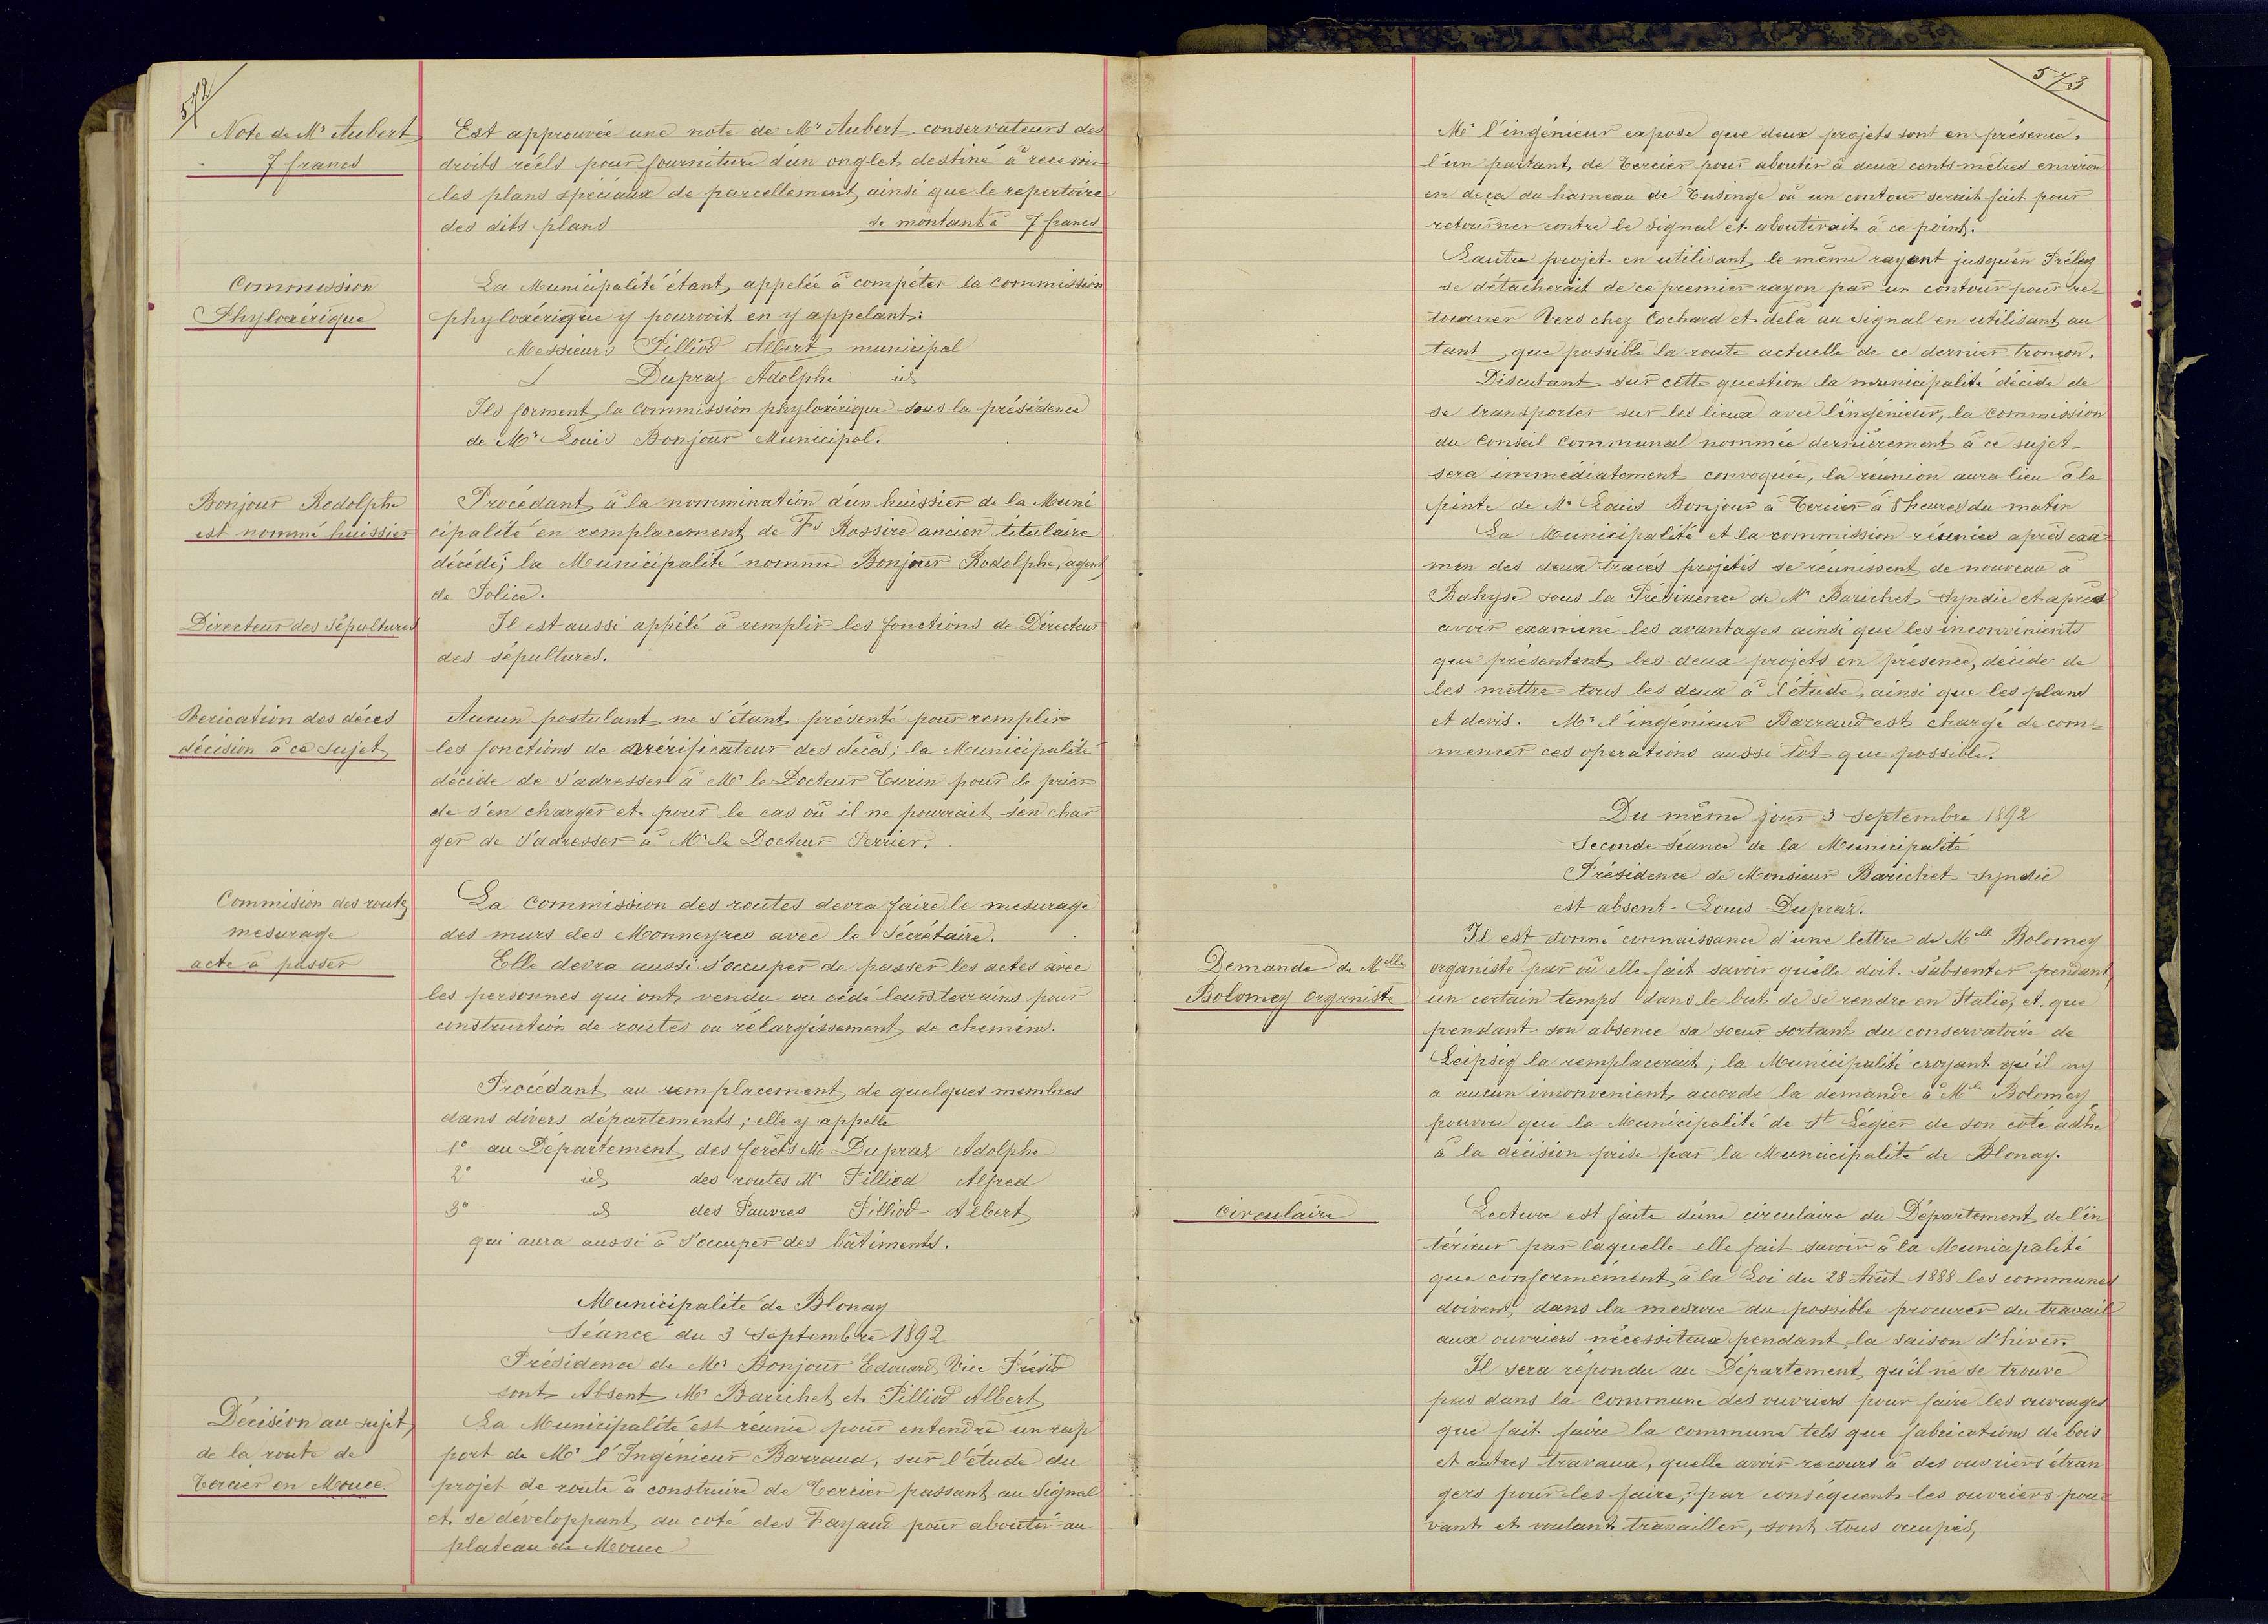 572
Note de Mr Aubert
7 francs
Est approuvée une note de Mr Aubert conservateurs des
droits réels pour fourniture d'un onglet destiné à recevoir
les plans spéciaux de parcellement ainsi que le repertoire
des dits plans se montant à 7 francs
Commission
Phyloxérique
La Municipalité étant appelée à compéter la Commission
phyloxérique y pourvoit en y appelant:
Messieurs Pilliod Albert municipal
Dupraz Adolphe id
Ils forment la Commission phyloxérique sous la présidence
de Mr Louis Bonjour Municipal.
Bonjour Rodolphe
est nommé huissier
Procédant à la nommination d'un huissier de la Muni
cipalité en remplacement de Fs Rossire ancien titulaire
décédé; la Municipalité nomme Bonjour Rodolphe, agent
de Police.
Directeur des Sépultures
Il est aussi appélé à remplir les fonctions de Directeur
des sépultures.
Verication des décès
décision à ce sujet
Aucun postulant ne s'étant présenté pour remplir
les fonctions de vérificateur des décès; la Municipalité
décide de s'adresser à Mr le Docteur Turin pour le prier
de s'en charger et pour le cas où il ne pourrait s'en char
ger de s'adresser à Mr le Docteur Perrier.
Commision des routes
mesurage
acte à passer
La Commission des routes devra faire le mesurage
des murs des Monneyres avec le Sécrétaire.
Elle devra aussi s'occuper de passer les actes avec
les personnes qui ont vendu ou cédé leurs terrains pour
construction de routes ou rélargissement de chemins.
Procédant au remplacement de quelques membres
dans divers départements; elle y appelle
1° au Département des forêts Mr Dupraz Adolphe
2° id des routes Mr Pilliod Alfred
3° id des Pauvres Pilliod Albert
qui aura aussi à s'occuper des bâtiments.
Municipalité de Blonay
Séance du 3 Septembre 1892
Présidence de Mr Bonjour Edouard Vice Présid
sont Absent Mr Barichet et Pilliod Albert
Décision au sujet
de la route de
Tercier en Mouce
La Municipalité est réunie pour entendre un rap
port de Mr l'Ingénieur Barraud, sur l'étude du
projet de route à construire de Tercier passant au Signal
et se développant du coté des Fayaud pour aboutir au
plateau de Mouce
573
Mr l'ingénieur expose que deux projets sont en présence.
l'un partant de Tercier pour aboutir à deux cents mètres environ
en deça du hameau de Tusinge où un contour serait fait pour
retourner contre le Signal et aboutirait à ce point.
L'autre projet en utilisant le même rayont jusqu'en Prélaz
se détacherait de ce premier rayon par un contour pour re-
tourner Vers chez Cochard et delà au Signal en utilisant au
tant que possible la route actuelle de ce dernier tronçon.
Discutant sur cette question la municipalité décide de
se transporter sur les lieux avec l'ingénieur, la Commission
du Conseil Communal nommée dernièrement à ce sujet
sera immédiatement convoquée, la réunion aura lieu à la
pinte de Mr Louis Bonjour à Tercier à 8 heures du matin
La Municipalité et la commission réunies après exa-
men des deux tracés projetés se réunissent de nouveau à
Bahyse sous la Présidence de Mr Barichet Syndic et après
avoir examiné les avantages ainsi que les inconvénients
que présentent les deux projets en présence, décide de
les mettre tous les deux à l'étude, ainsi que les plans
et devis. Mr l'ingénieur Barraud est chargé de com-
mencer ces operations aussi tôt que possible.
Du même jour 3 Septembre 1892
Seconde Séance de la Municipalité
Présidence de Monsieur Barichet Syndic
est absent Louis Dupraz.
Demande de Melle
Bolomey Organiste
Il est donné connaissance d'une lettre de Melle Bolomey
organiste par où elle fait savoir quelle doit s'absenter pendant
un certain temps dans le but de se rendre en Italie, et que
pendant son absence sa soeur sortant du conservatoire de
Leipsig la remplacerait; la Municipalité croyant qu'il ny
a aucun inconvenient accorde la demande à Mlle Bolomey
pourvu que la Municipalité de St Légier de son coté adhé
à la décision prise par la Municipalité de Blonay.
Circulaire
Lecture est faite d'une circulaire du Département de l'in
térieur par laquelle elle fait savoir à la Municipalité
que conformément à la Loi du 28 Août 1888 les communes
doivent dans la mesure du possible procurer du travail
aux ouvriers nécessiteux pendant la saison d'hiver.
Il sera répondu au Département qu'il ne se trouve
pas dans la Commune des ouvriers pour faire les ouvrages
que fait faire la commune tels que fabrications de bois
et autres travaux, quelle avoir recours à des ouvriers étran
gers pour les faire; par conséquents les ouvriers pou
vant et voulant travailler, sont tous occupés,